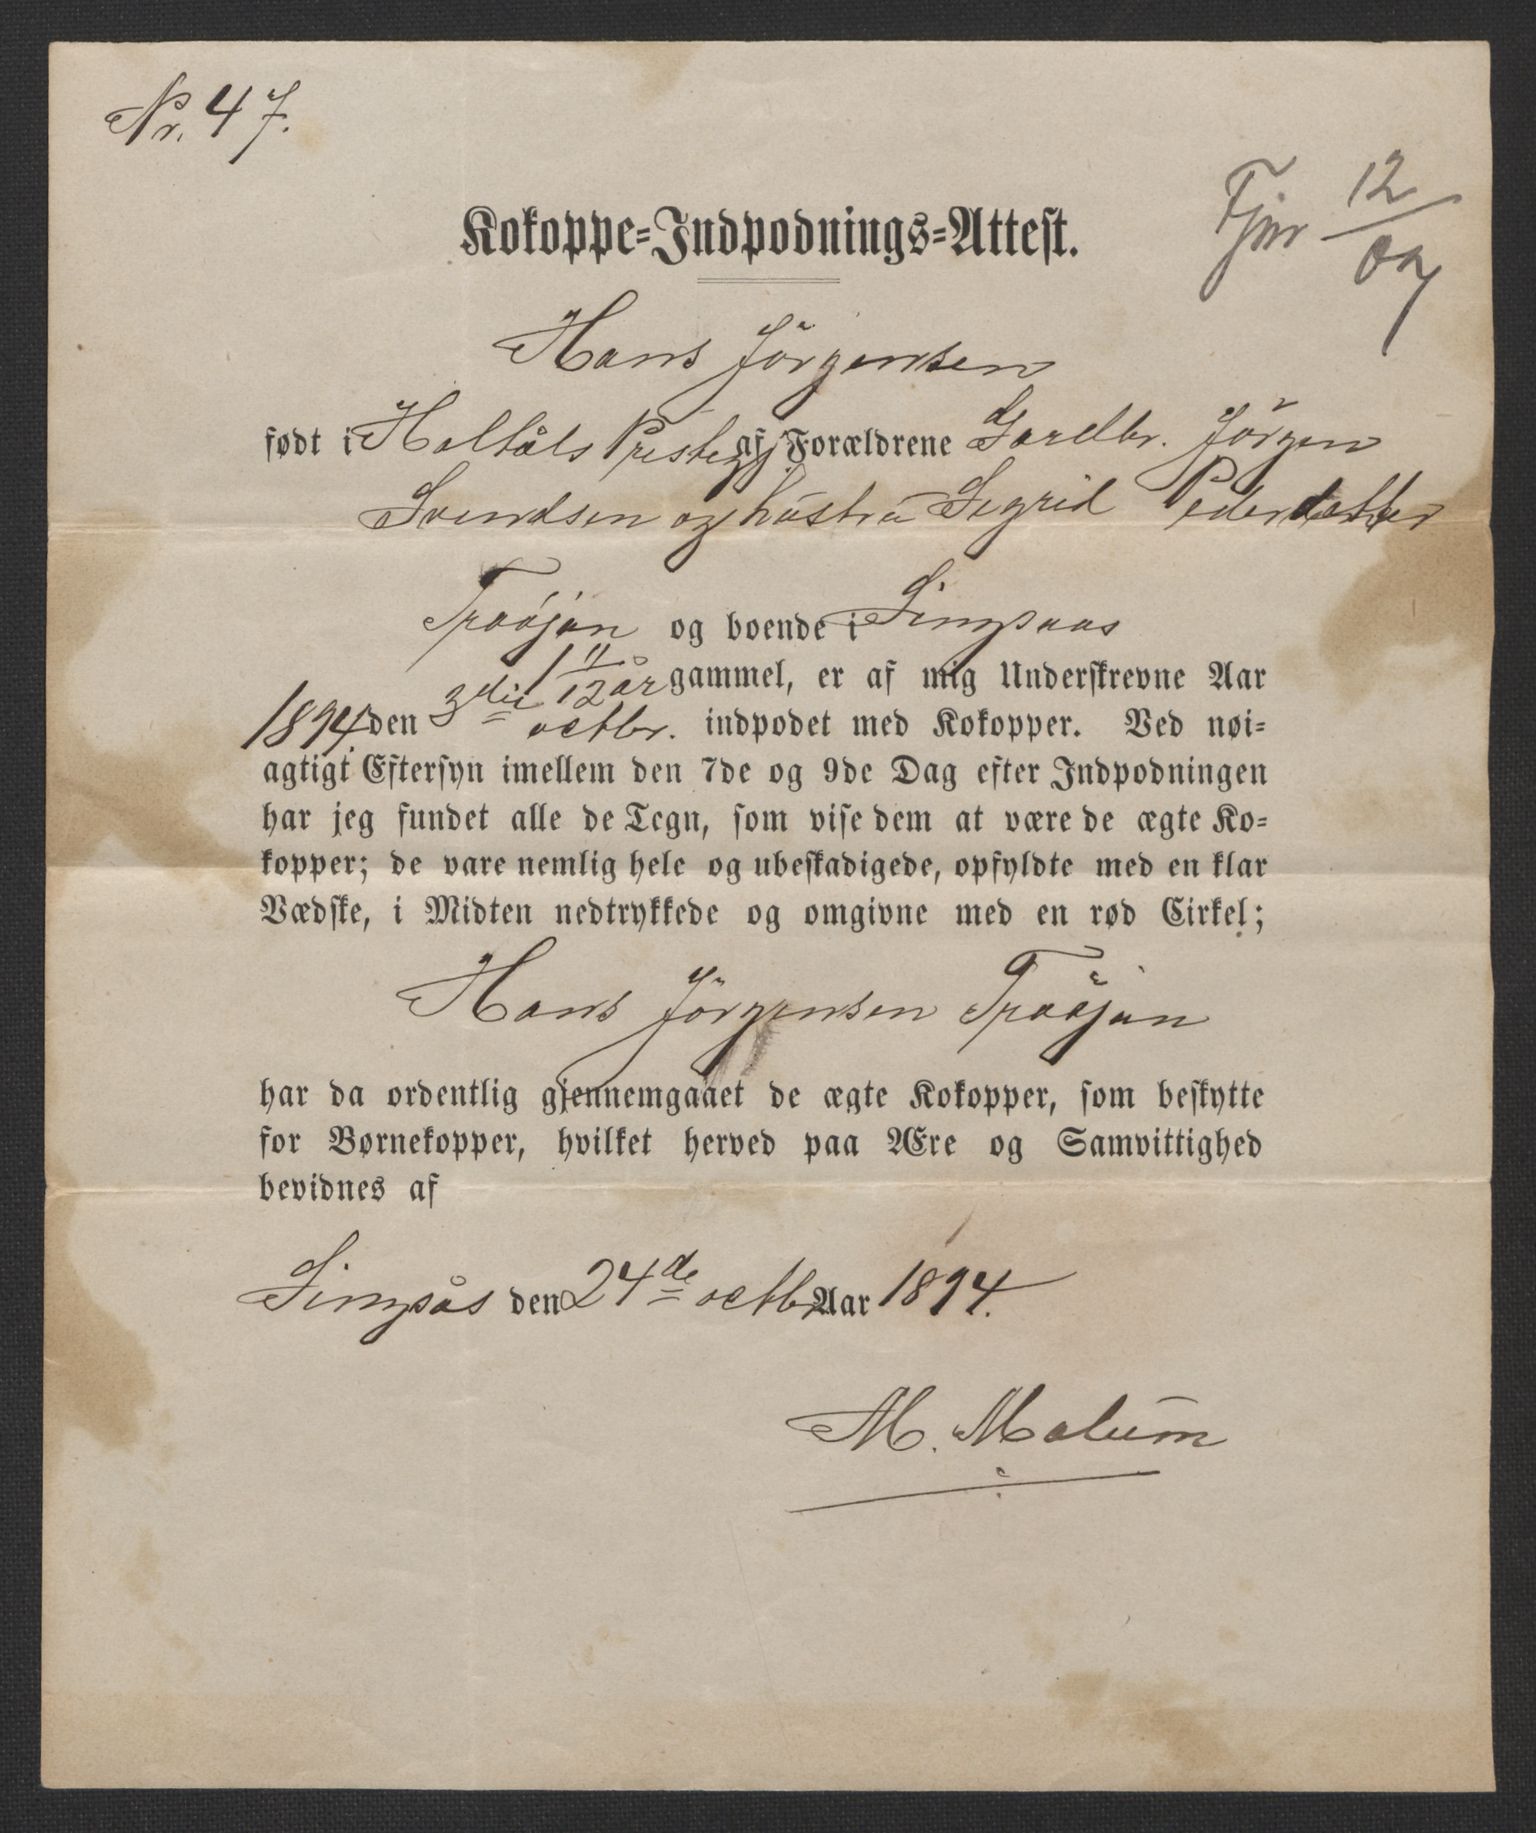 Nr. 47.
Kokoppe-Indpodnings-Attest.
12
Hans Jörgensen
født i Holtåls Prestegj. af Forældrene Gardbr. Jörgen
Svendsen og hustru Sigrid Pedersdatter
Traöjen og boende i Singsaas
1 11/12 år gammel, er af mig Underskrevne Aar
1894 den 3die octbr. indpodet med Kokopper. Ved nøi-
agtigt Eftersyn imellem den 7de og 9de Dag efter Indpodningen
har jeg fundet alle de Tegn, som vise dem at være de ægte Ko-
kopper; de vare nemlig hele og ubeskadigede, opfyldte med en klar
Vædske, i Midten nedtrykkede og omgivne med en rød Cirkel;
Hans Jörgensen Traöjen
har da ordentlig gjennemgaaet de ægte Kokopper, som beskytte
for Børnekopper, hvilket herved paa Ære og Samvittighed
bevidnes af
Singsås den 24de octbr. Aar 1894.
M. Malum